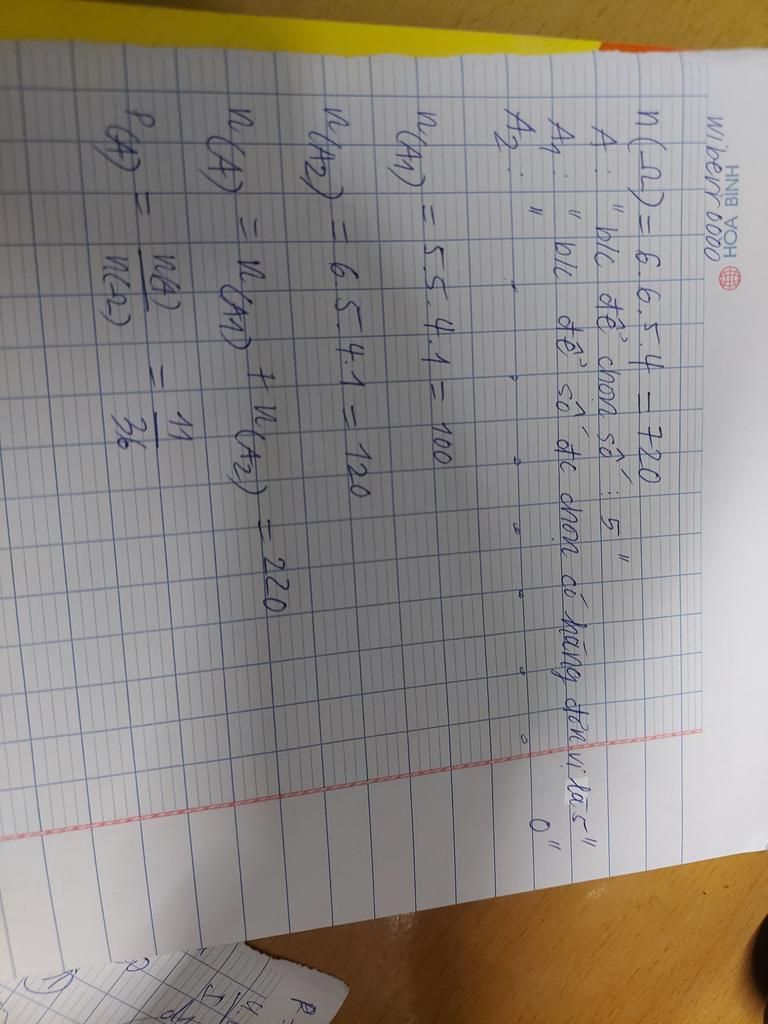 HOA BINH
n(Ω) = 6.6.5.4 = 720
A: " b/c để chọn số ⋮ 5 "
A1: " b/c để số đc chọn có hàng đơn vị là 5 "
A2: " . . . . . . . 0 "
n(A1) = 5.5.4.1 = 100
n(A2) = 6.5.4.1 = 120
n(A) = n(A1) + n(A2) = 220
P(A) = n(A)/n(Ω) = 11/36